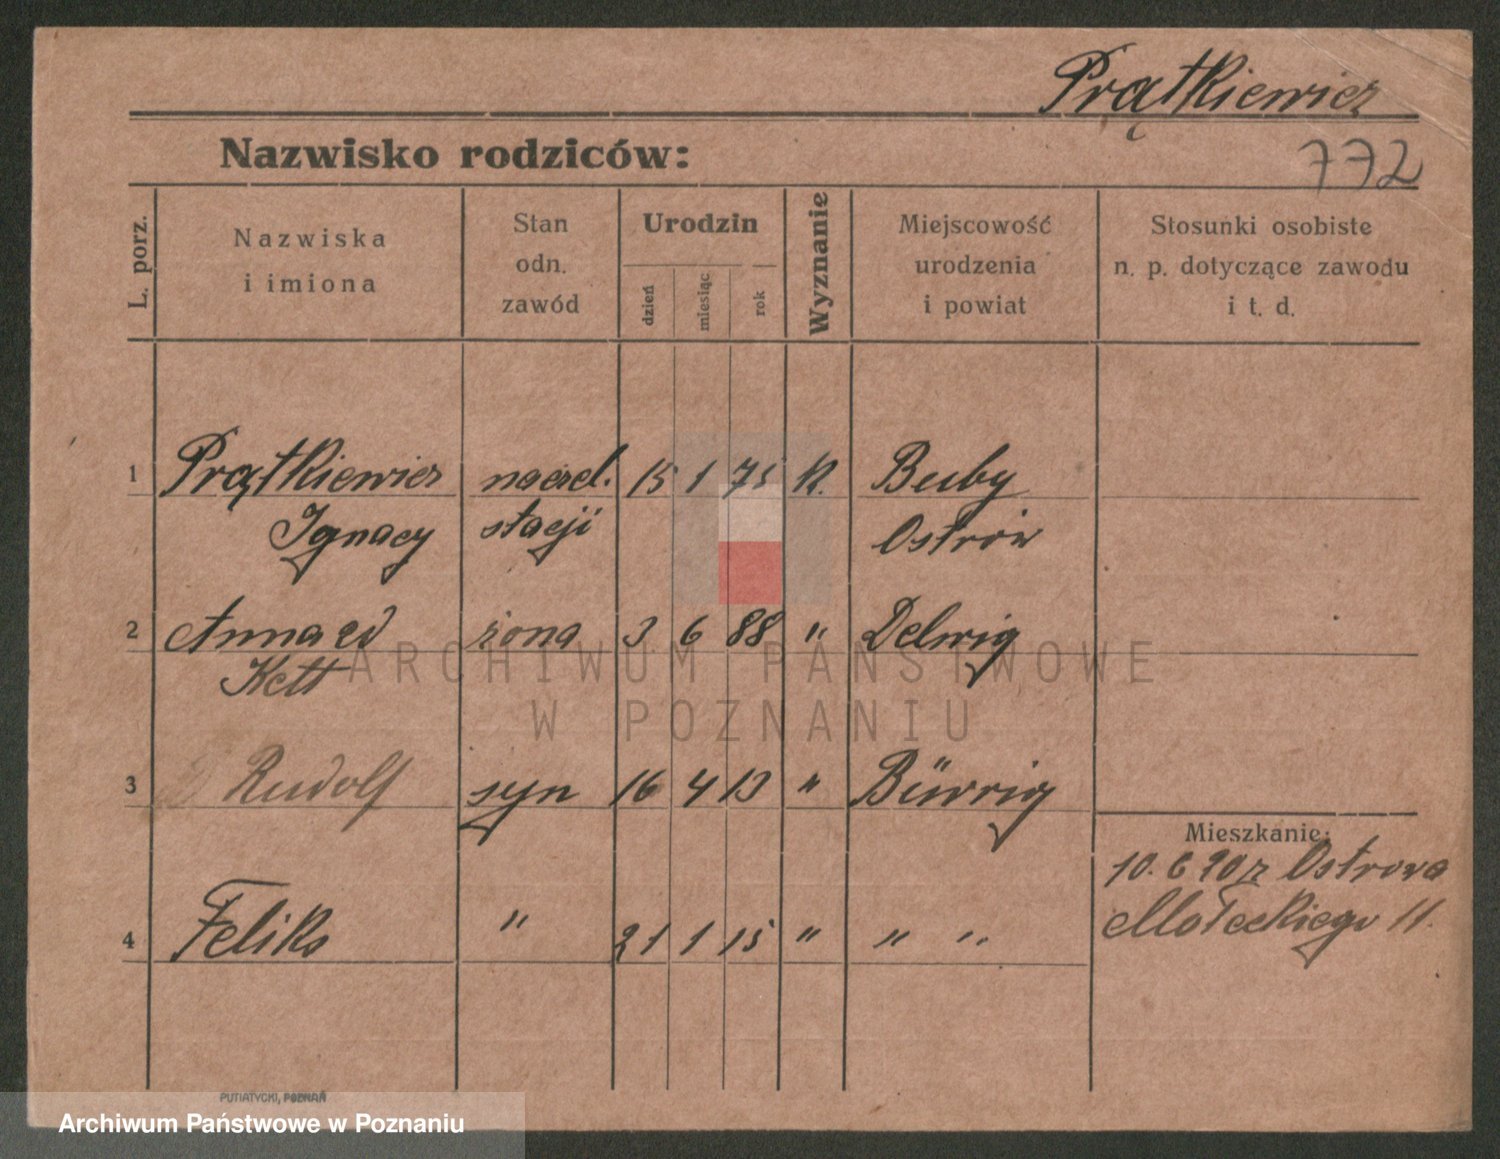 Prątkiewicz
772
Nazwisko rodziców:
L. porz.
Nazwiska
i imiona
Stan
odn.
zawód
Urodzin
dzień
miesiąc
rok
Wyznanie
Miejscowość
urodzenia
i powiat
Stosunki osobiste
n. p. dotyczące zawodu
i t. d.
1 Prątkiewicz naczel. 15 1 75 K. Buby
Ignacy stacji Ostrów
2 Anna żona 3 6 88 " Delwig
Kett
ARCHIWUM PAŃSTWOWE
W POZNANIU
3 Rudolf syn 16 4 13 " Büwrig
Mieszkanie:
10. 6 20 z Ostrowa
Małeckiego 11.
4 Feliks " 21 1 15 " " "
PUTIATYCKI, POZNAŃ
Archiwum Państwowe w Poznaniu